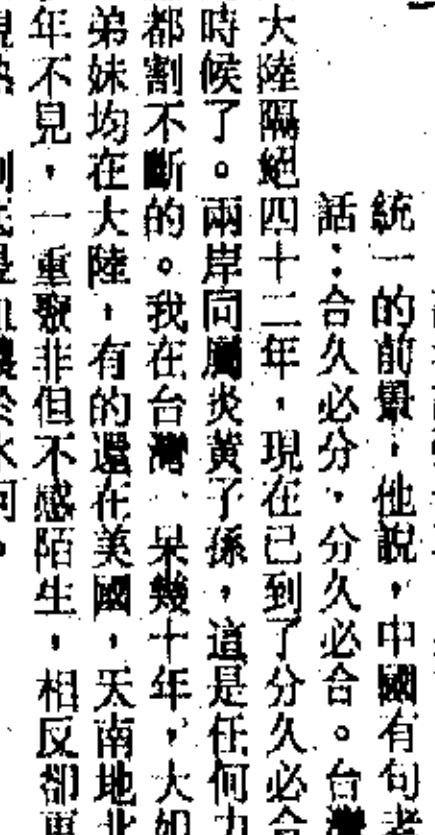 統一的前景，他說，中國有句老
話：合久必分，分久必合。台灣
大陸隔絕四十二年，現在已到了分久必合
時候了。兩岸同屬炎黃子孫，這是任何力
都割不斷的。我在台灣一呆幾十年，大姐
弟妹均在大陸，有的還在美國，天南地北
年不見，一重聚非但不感陌生，相反卻更
到底是血濃於水阿。